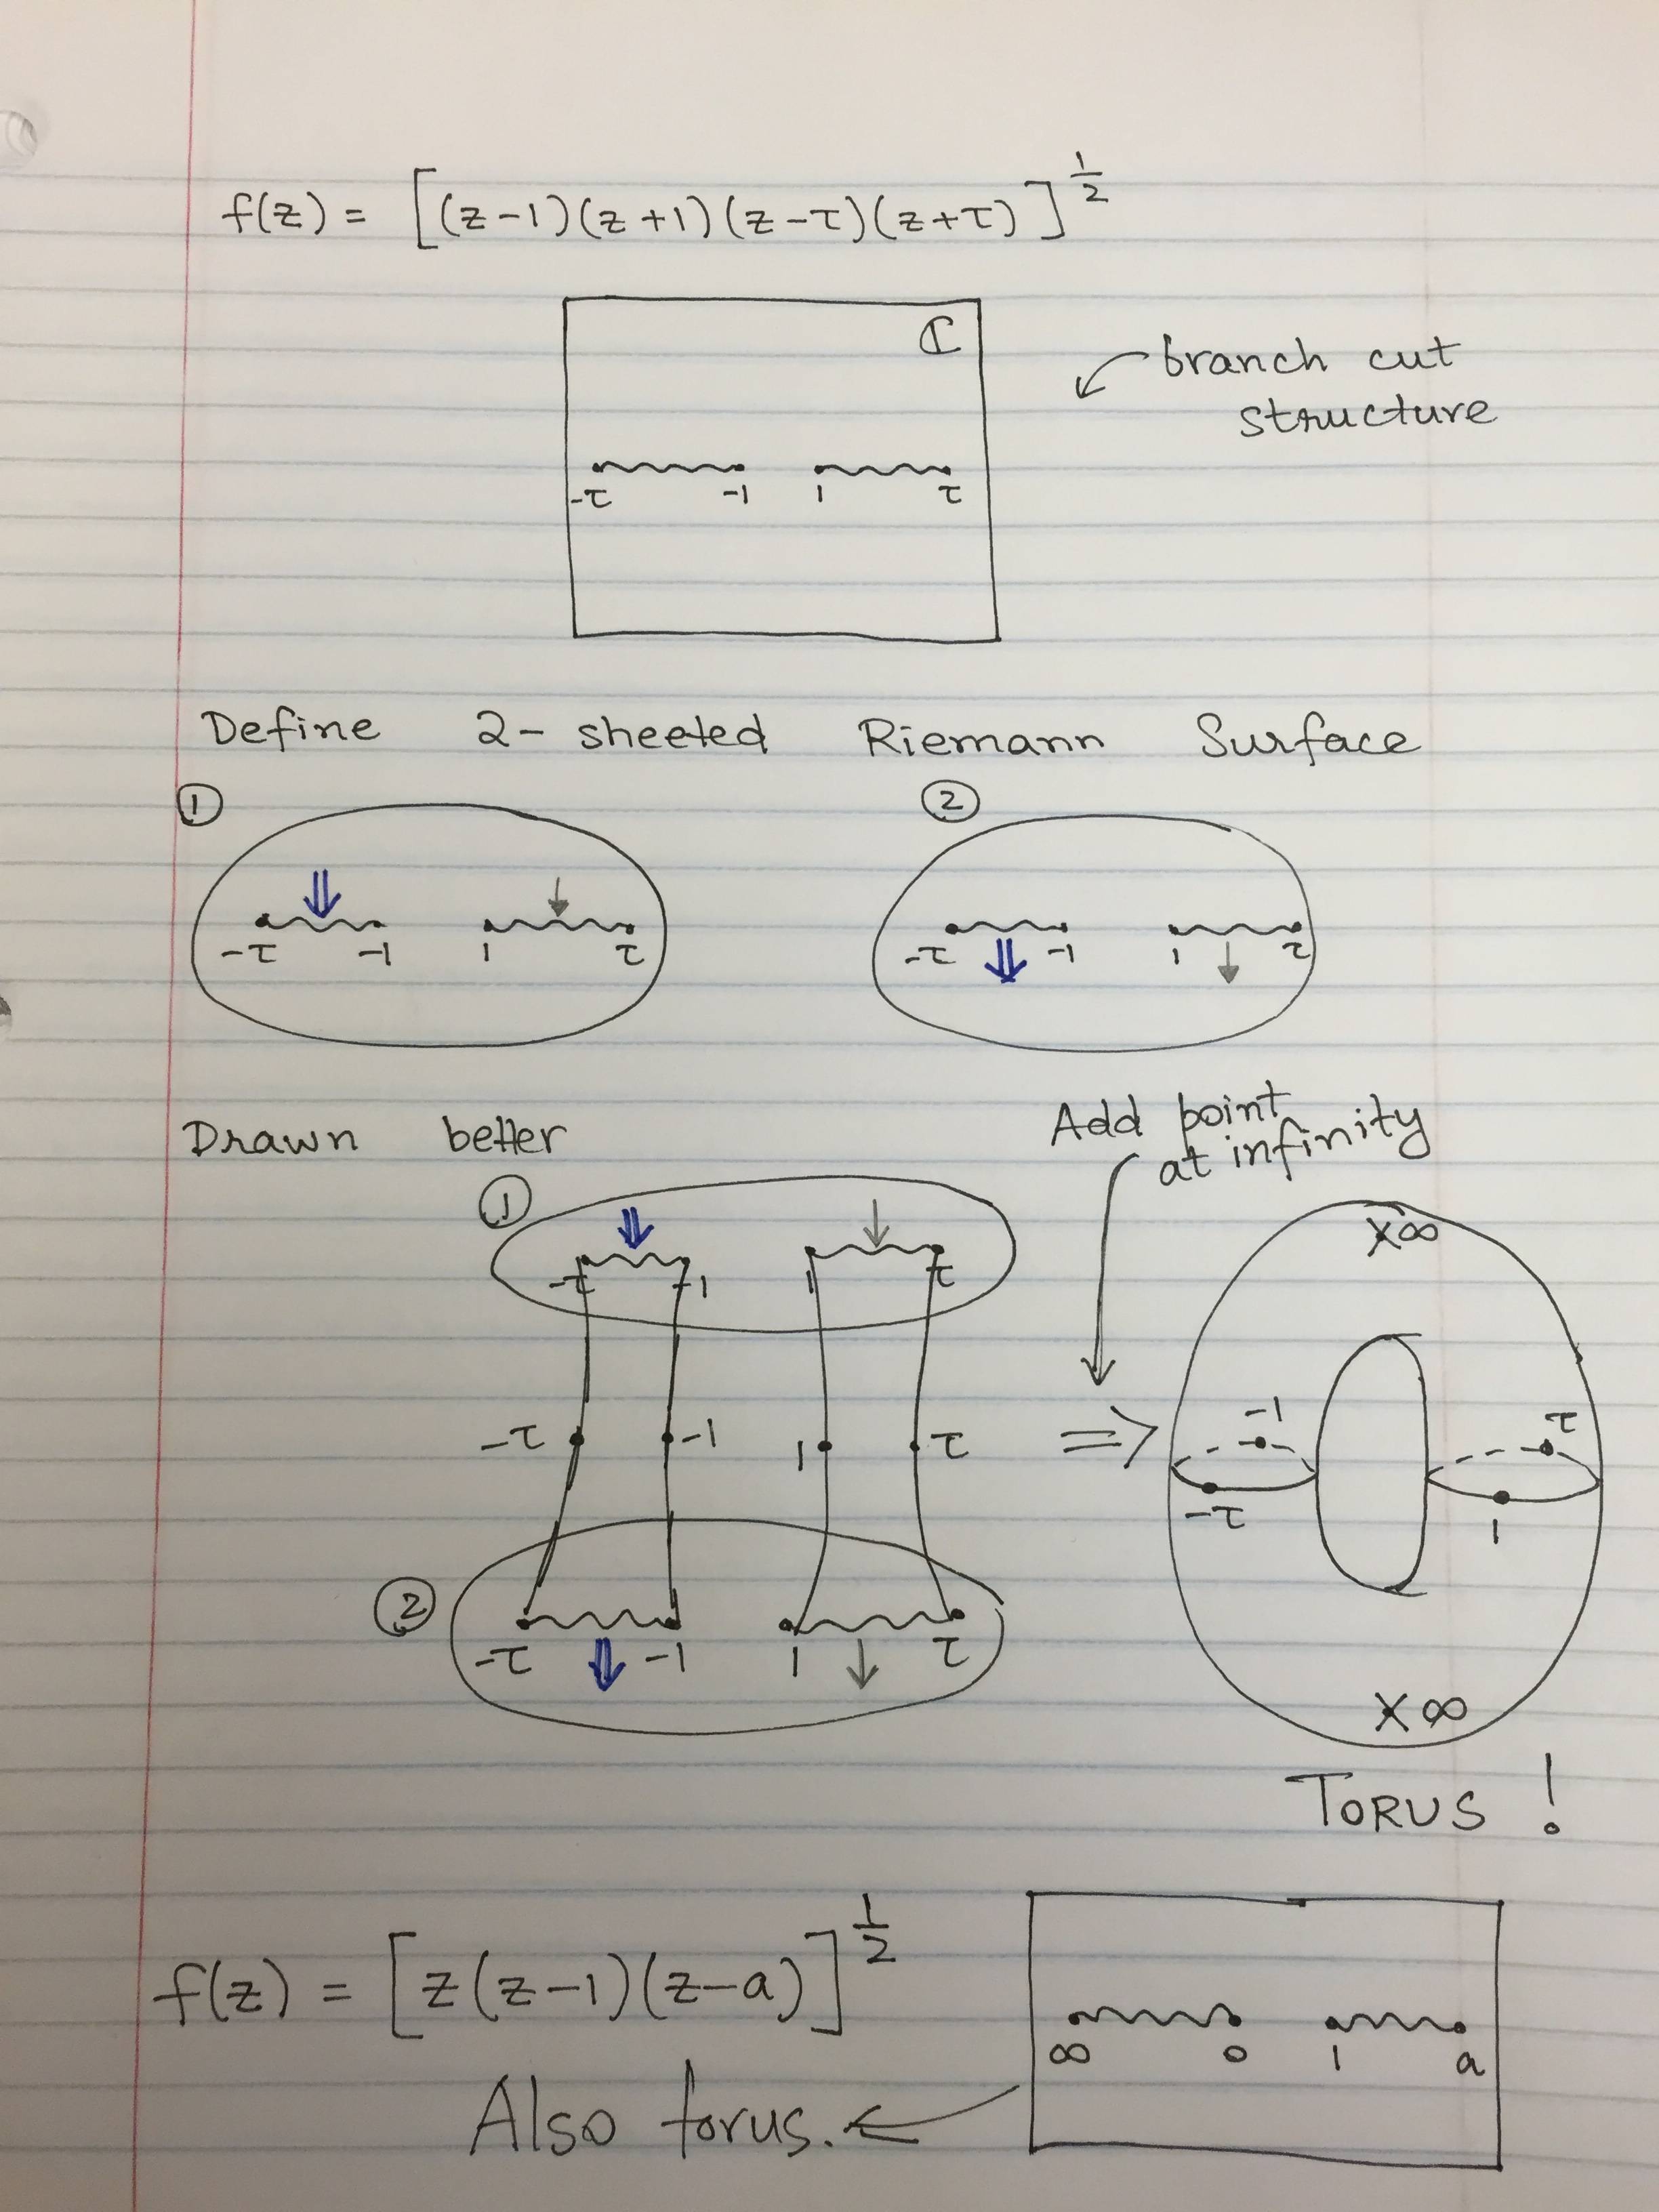 f(z) = [(z-1)(z+1)(z-τ)(z+τ)]^{1/2}
ℂ
branch cut
structure
-τ -1 1 τ
Define 2-sheeted Riemann Surface
① ②
-τ -1 1 τ -τ -1 1 τ
Drawn better
Add point
at infinity
①
-τ -1 1 τ
×∞
-τ -1 1 τ ⇒ -1 τ
-τ 1
②
-τ -1 1 τ
×∞
TORUS !
f(z) = [z(z-1)(z-a)]^{1/2}
∞ 0 1 a
Also torus.